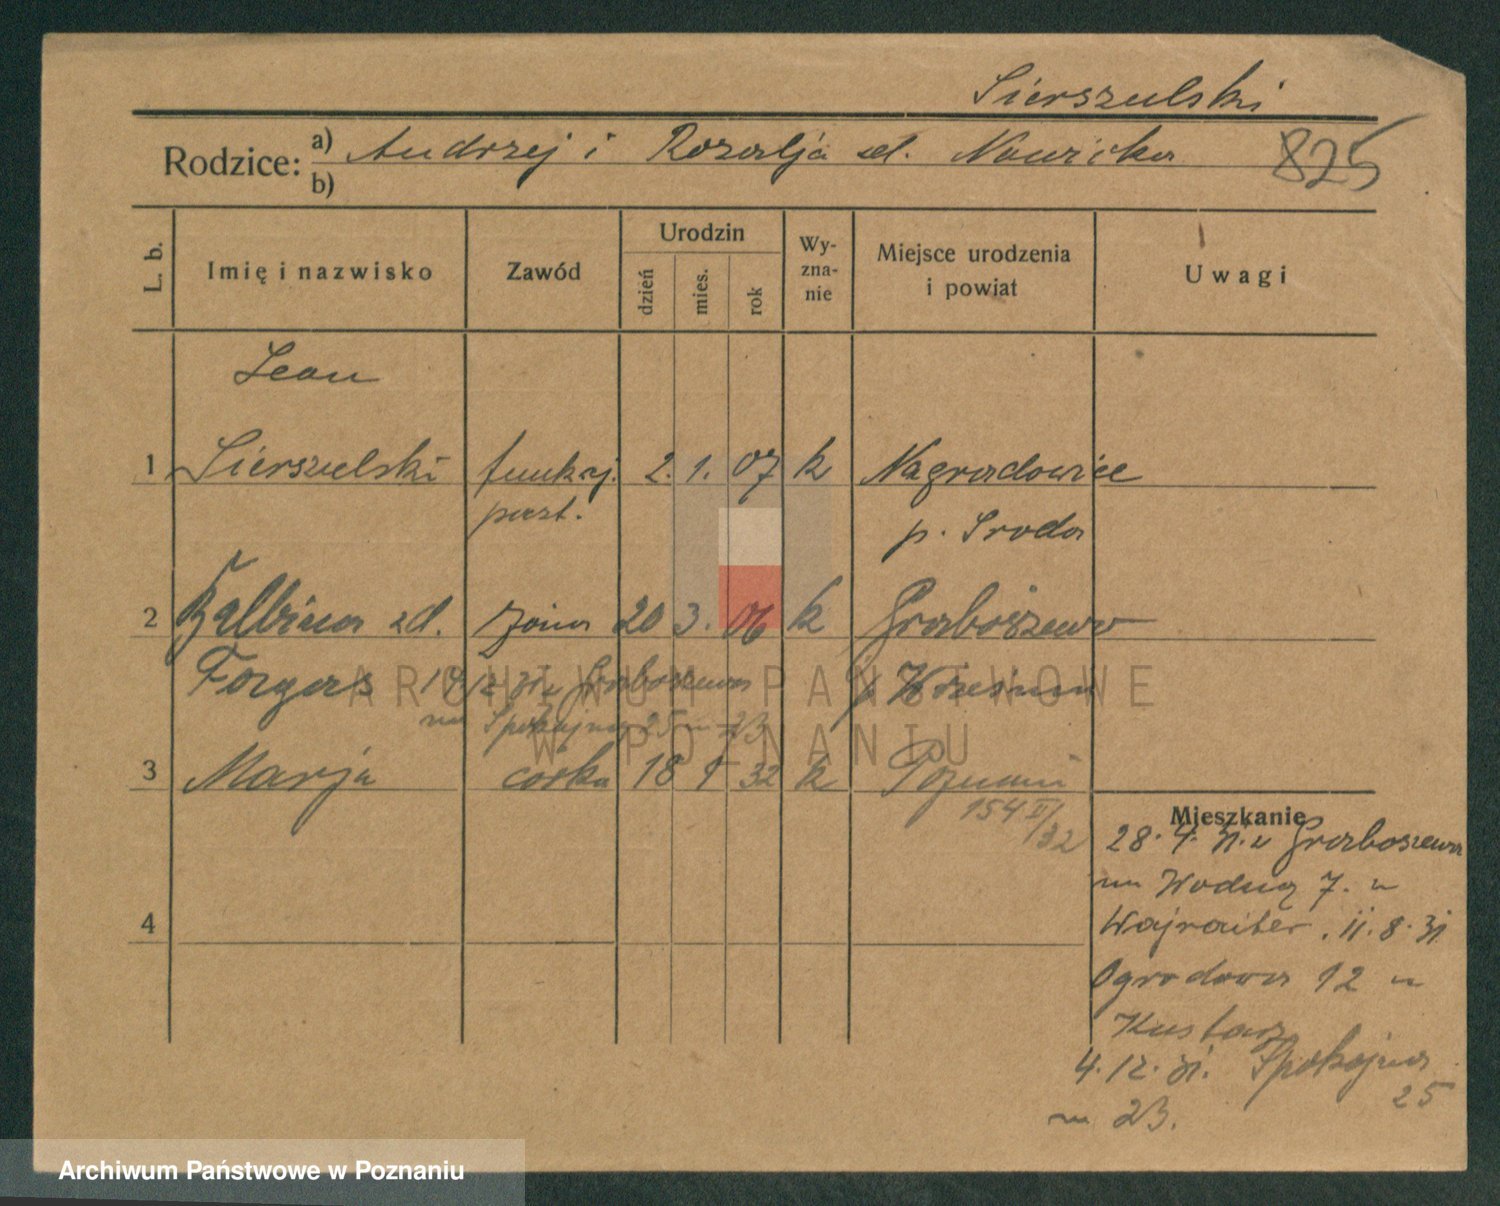 Sierszulski
Rodzice: a) Andrzej i Rozalja zd. Nowicka 825
b)
L. b.
Imię i nazwisko
Zawód
Urodzin
dzień
mies.
rok
Wy-
zna-
nie
Miejsce urodzenia
i powiat
Uwagi
Leon
1 Sierszulski funkcj. 2. 1. 07 k Nagradowice
poczt. p. Środa
2 Balbina zd. żona 20 3. 06 k Graboszewo
14/12 31 z Graboszewa p. Września
na Spokojną 25 m 23
3 Marja córka 18 1 32 k Poznań
154 II/32
4
Mieszkanie
28. 4. 31. z Graboszewa
na Wodną 7. u
11. 8. 31
Ogrodowa 12 u
4. 12. 31. Spokojna
25
m 23.
ARCHIWUM PAŃSTWOWE
W POZNANIU
Archiwum Państwowe w Poznaniu